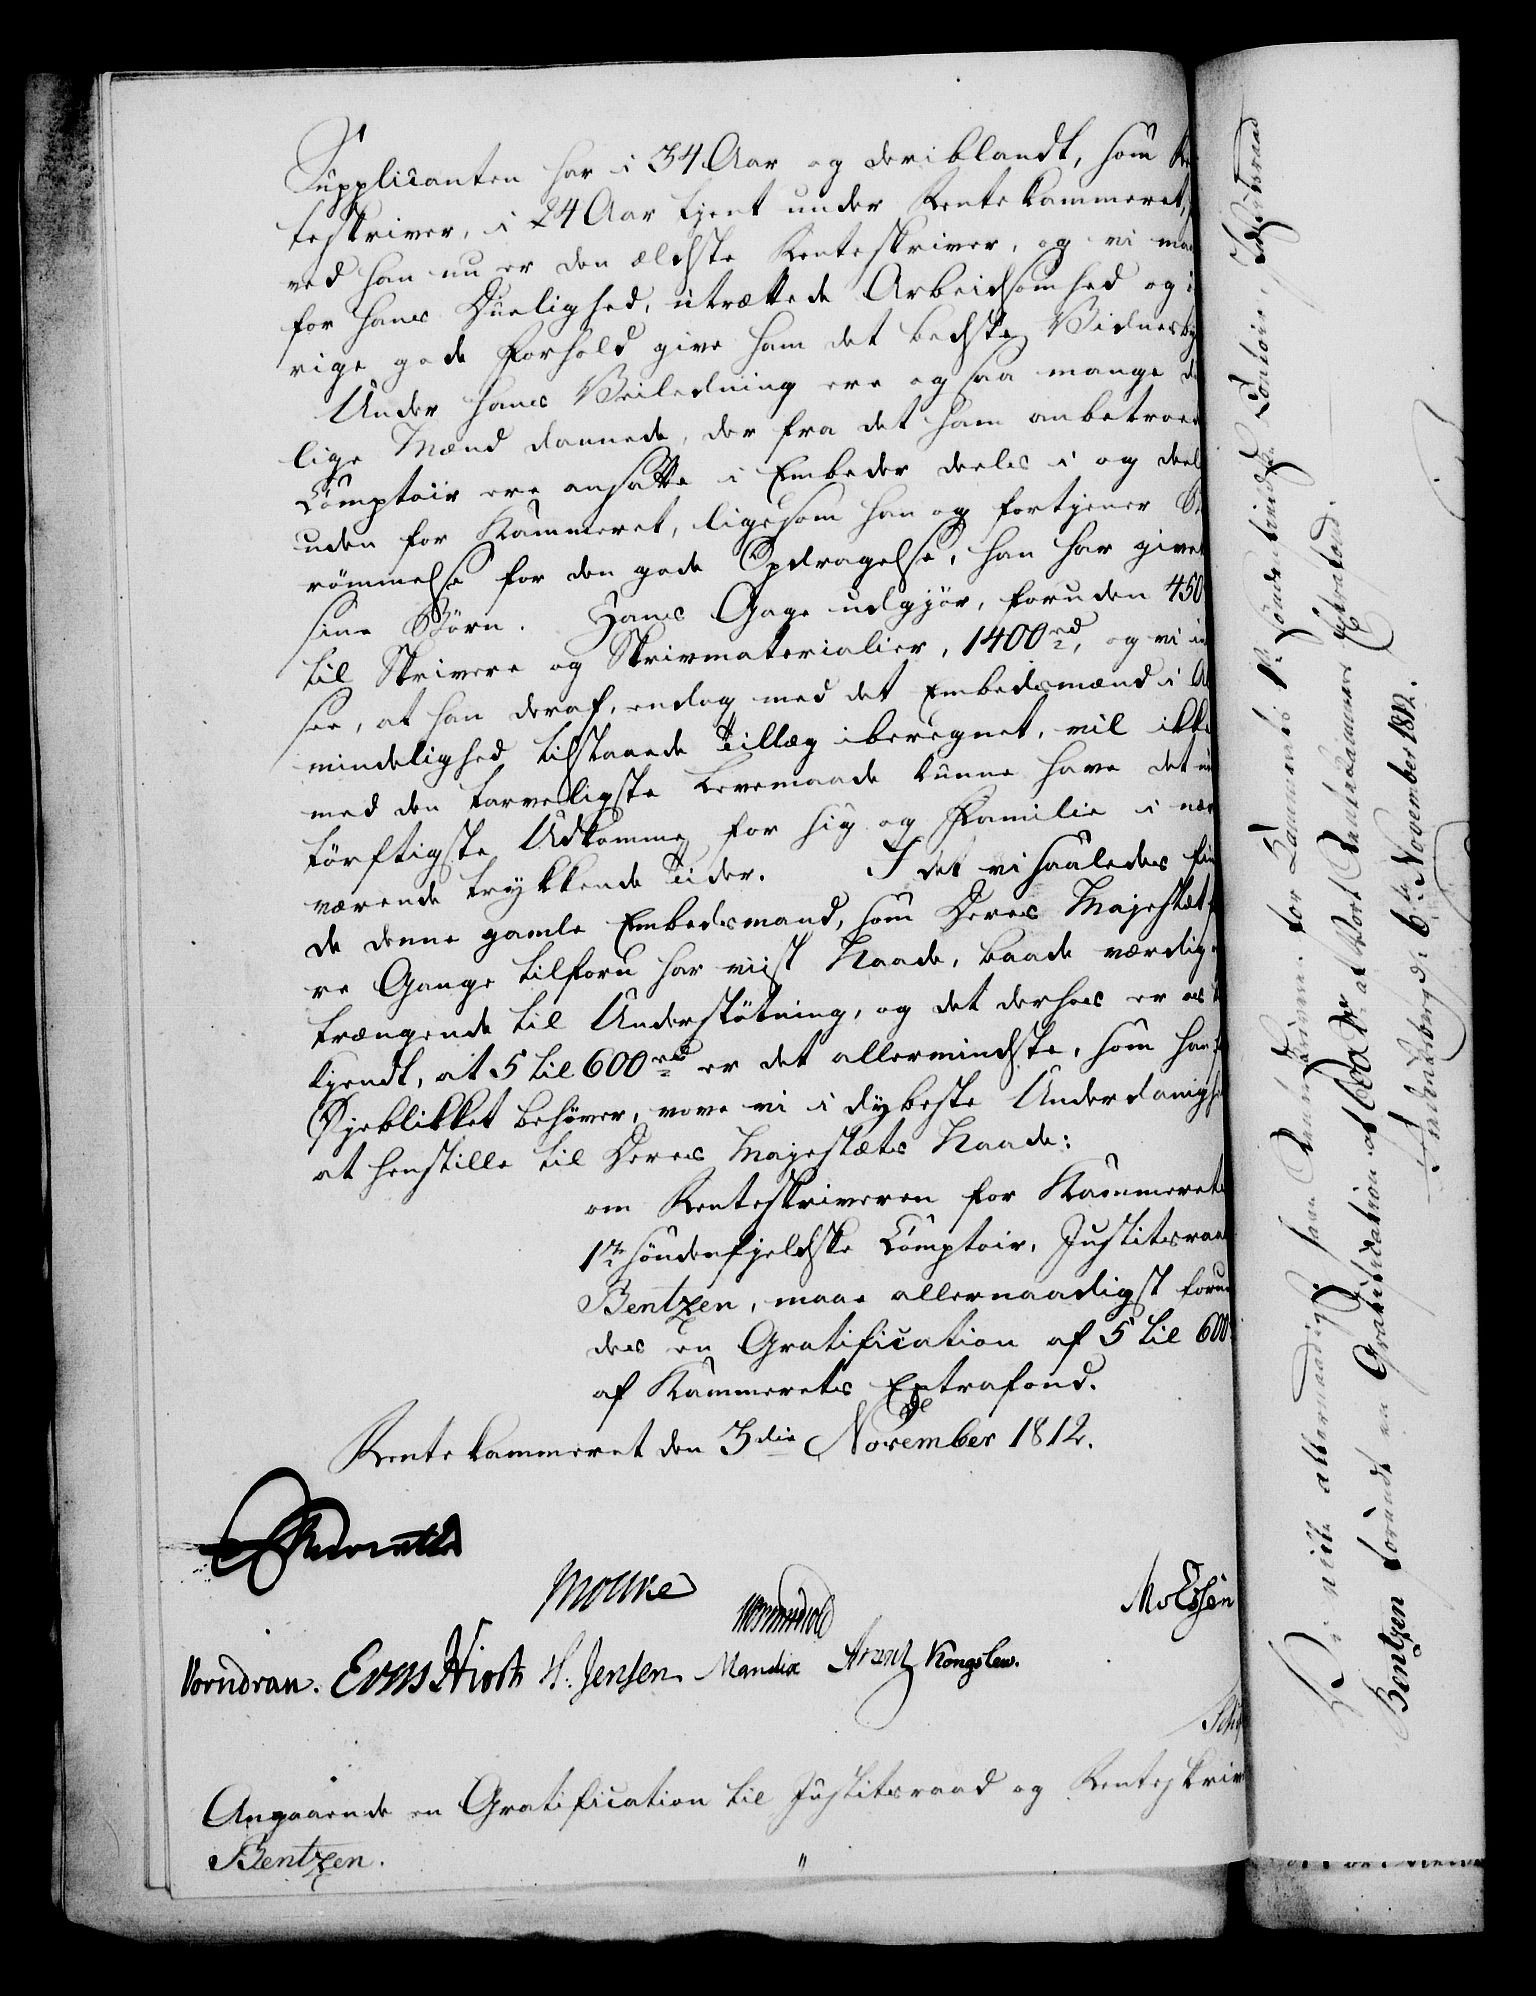 Supplicanten har i 34 Aar og deriblandt, som
teskriver, i 24 Aar tjent under Rentekammeret,
ved han nu er den ældste Renteskriver, og vi maa
for hans Duelighed, utrættede Arbeidsomhed og
rige gode Forhold give ham det bedste Vidnesby
Under hans Veiledning ere og saa mange
lige Mænd dannede, der fra det ham anbetroed
Comptoir ere ansatte i Embeder deels i og deel
uden for Kammeret, ligesom han og fortjener
römmelse for den gode Opdragelse, han har givet
sine Börn. Hans Gage udgjör, foruden 450
til Skrivere og Skrivmaterialier, 1400 rd, og vi
see, at han deraf, endog med det Embedsmænd i Al
mindelighed tilstaaede Tillæg iberegnet, vil ikke
med den tarveligste Levemaade kunne have det
törftigste Udkomme for sig og Familie i nær
værende trykkende Tider. I det vi saaledes fin
de denne gamle Embedsmand, som Deres Majestæt
re Gange tilforn har viist Naade, baade værdig
trængende til Understötning, og det derhos er os
kjendt, at 5 til 600 rd er det allermindste, som han
Öjeblikket behöver, vove vi i dybeste Underdanighe
at henstille til Deres Majestæts Naade:
om Renteskriveren for Kammerets
1ste Söndenfjeldske Comptoir, Justitsraad
Bentzen, maae allernaadigst forun
des en Gratification af 5 til 600
af Kammerets Extrafond.
Rentekammeret den 3die November 1812.
Mourie
M. Essen
Vorndran. Evers Hirth H: Jensen. Mandix Arentz Kongslew.
Angaaende en Gratification til Justitsraad og Renteskriv
Bentzen.
Vi ville allernaadigst have Renteskriver for Kammerets 1ste Söndenfjeldske Contoir, Justitsraad
Bentzen forundt en Gratification af 600 rd af Vort Rentekammers Extrafond.
Frederiksberg d: 6te November 1812.